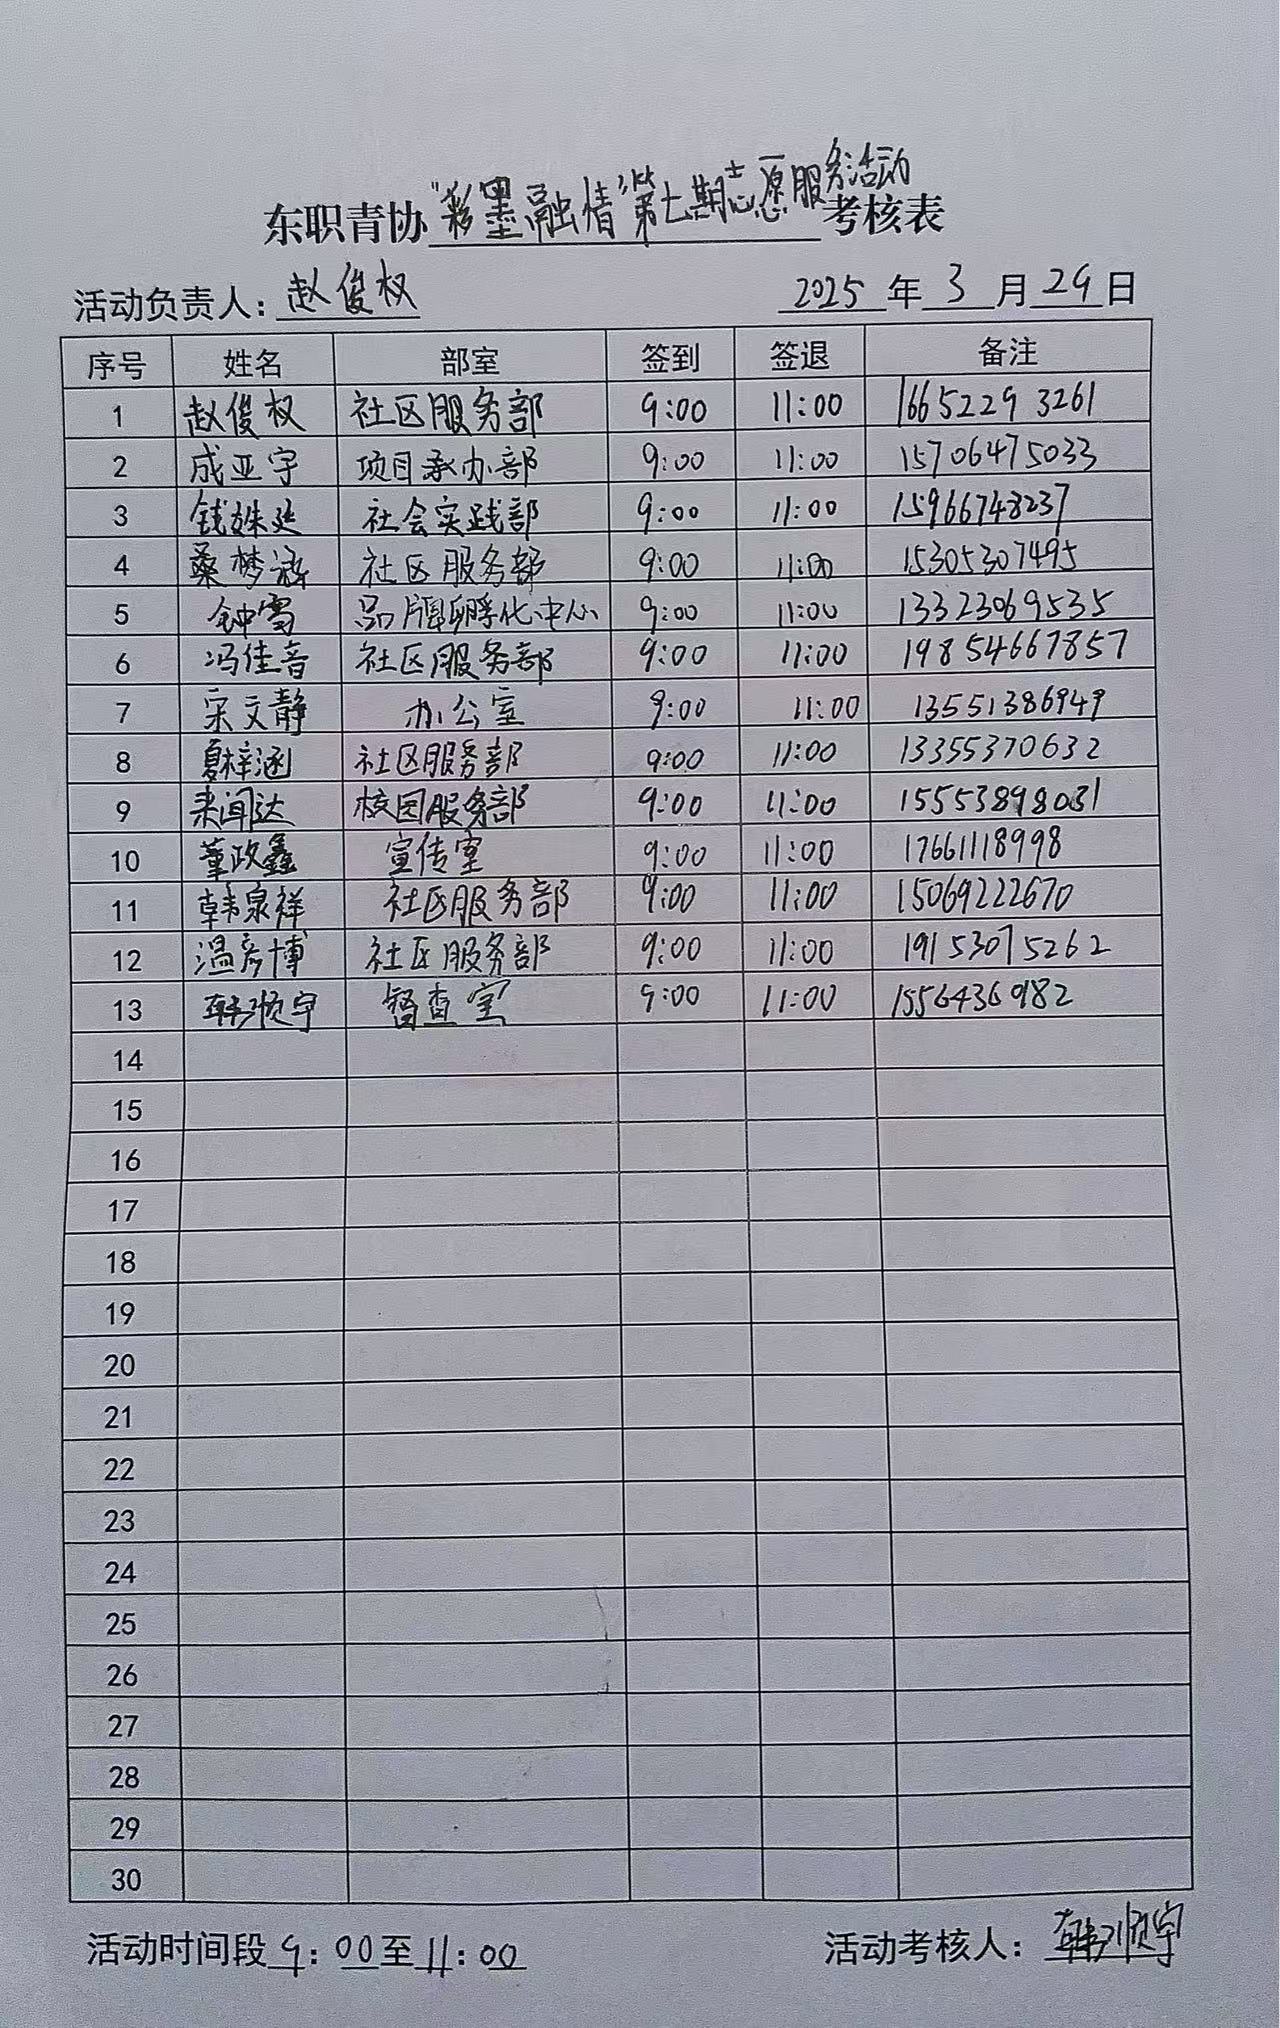 东职青协“彩墨融情”第七期志愿服务活动考核表
活动负责人：赵俊权 2025年3月29日
序号 姓名 部室 签到 签退 备注
1 赵俊权 社区服务部 9:00 11:00 16652293261
2 成亚宇 项目承办部 9:00 11:00 15706475033
3 钱姝延 社会实践部 9:00 11:00 15966748237
4 桑梦涵 社区服务部 9:00 11:00 15305307495
5 钟雪 品牌孵化中心 9:00 11:00 13323069535
6 冯佳音 社区服务部 9:00 11:00 19854667857
7 宋文静 办公室 9:00 11:00 13551386949
8 夏梓涵 社区服务部 9:00 11:00 13355370632
9 来闻达 校园服务部 9:00 11:00 15553898031
10 董政鑫 宣传室 9:00 11:00 17661118998
11 韩泉祥 社区服务部 9:00 11:00 15069222670
12 温彦博 社区服务部 9:00 11:00 19153075262
13 韩顺宇 督查室 9:00 11:00 1556436982
14
15
16
17
18
19
20
21
22
23
24
25
26
27
28
29
30
活动时间段9:00至11:00 活动考核人：韩顺宇